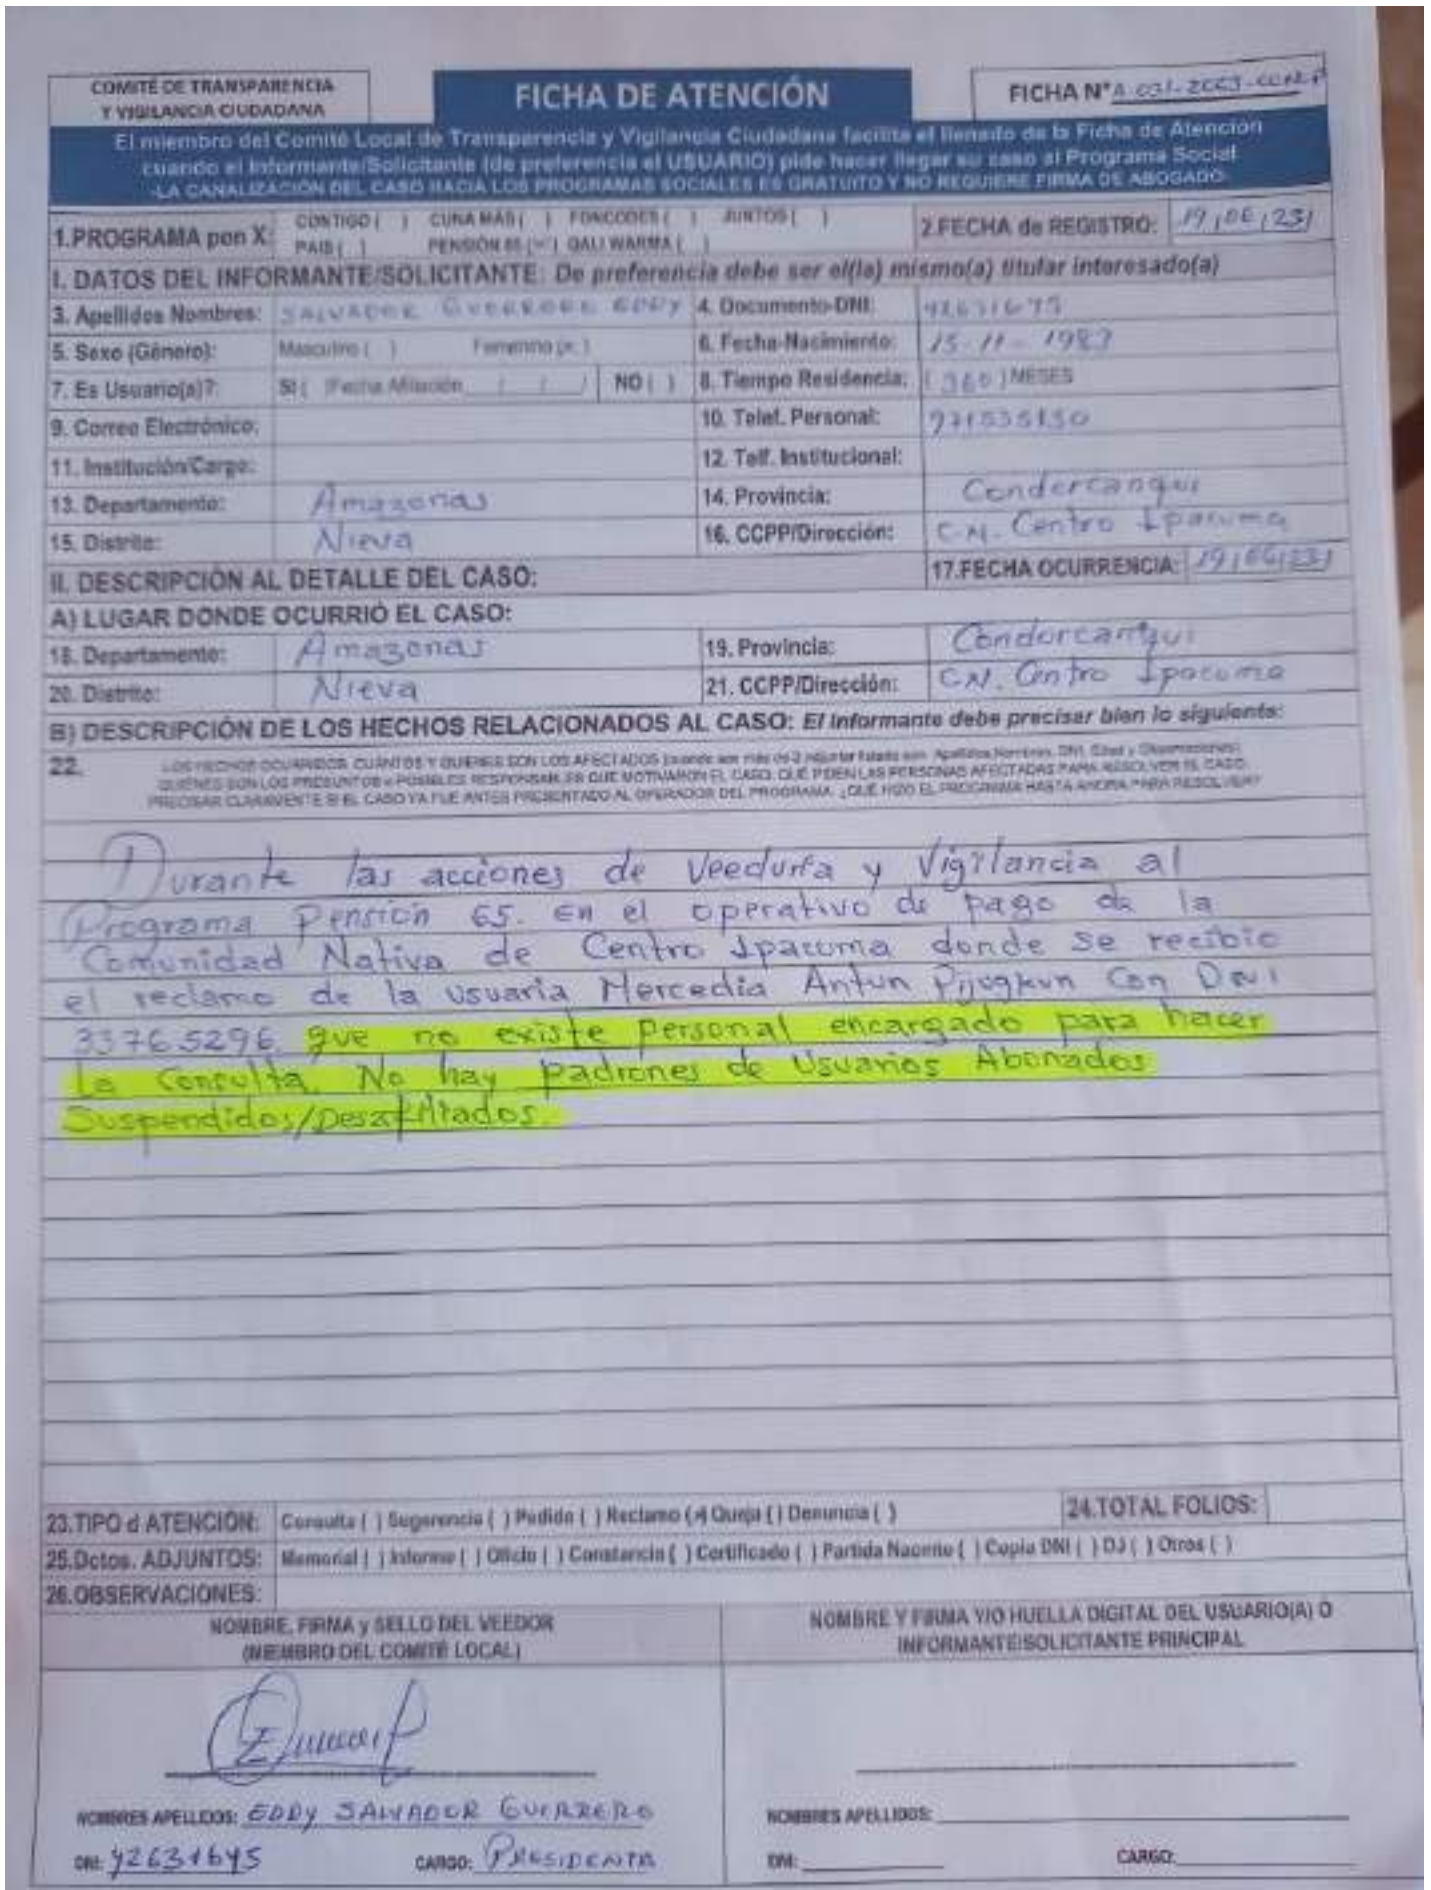 COMITÉ DE TRANSPARENCIA
Y VIGILANCIA CIUDADANA
FICHA DE ATENCIÓN
FICHA N°
El miembro del Comité Local de Transparencia y Vigilancia Ciudadana facilita el llenado de la Ficha de Atención
cuando el Informante/Solicitante (de preferencia el USUARIO) pide hacer llegar su caso al Programa Social
-LA CANALIZACIÓN DEL CASO HACIA LOS PROGRAMAS SOCIALES ES GRATUITO Y NO REQUIERE FIRMA DE ABOGADO-
1.PROGRAMA pon X: CONTIGO ( ) CUNA MÁS ( ) FONCODES ( ) JUNTOS ( )
PAIS ( ) PENSIÓN 65 (x) QALI WARMA ( )
2.FECHA de REGISTRO: 19/06/23
I. DATOS DEL INFORMANTE/SOLICITANTE: De preferencia debe ser el(la) mismo(a) titular interesado(a)
3. Apellidos Nombres: SALVADOR GUERRERO EDDY 4. Documento-DNI:
5. Sexo (Género): Masculino ( ) Femenino (x) 6. Fecha-Nacimiento: 15-11-
7. Es Usuario(a)?: SI ( )Fecha Afiliación / / NO ( ) 8. Tiempo Residencia: (360) MESES
9. Correo Electrónico: 10. Telef. Personal:
11. Institución/Cargo: 12. Telf. Institucional:
13. Departamento: Amazonas 14. Provincia: Condorcanqui
15. Distrito: Nieva 16. CCPP/Dirección: C.N. Centro Ipacuma
II. DESCRIPCIÓN AL DETALLE DEL CASO: 17.FECHA OCURRENCIA: 19/06/23
A) LUGAR DONDE OCURRIÓ EL CASO:
18. Departamento: Amazonas 19. Provincia: Condorcanqui
20. Distrito: Nieva 21. CCPP/Dirección: C.N. Centro Ipacuma
B) DESCRIPCIÓN DE LOS HECHOS RELACIONADOS AL CASO: El Informante debe precisar bien lo siguiente:
22. LOS HECHOS OCURRIDOS. CUÁNTOS Y QUIENES SON LOS AFECTADOS Apellidos, Nombres, DNI, Edad y Observaciones
QUIÉNES SON LOS PRESUNTOS o POSIBLES RESPONSABLES QUE MOTIVARON EL CASO. QUÉ PIDEN LAS PERSONAS AFECTADAS PARA RESOLVER EL CASO.
PRECISAR CLARAMENTE SI EL CASO YA FUE ANTES PRESENTADO AL OPERADOR DEL PROGRAMA. ¿QUÉ HIZO EL PROGRAMA HASTA AHORA PARA RESOLVER?
Durante las acciones de Veeduría y Vigilancia al
Programa Pensión 65. En el operativo de pago de la
Comunidad Nativa de Centro Ipacuma donde se recibio
el reclamo de la usuaria Mercedia Antun Pijugkun Con DNI
33765296, que no existe personal encargado para hacer
la Consulta. No hay padrones de Usuarios Abonados
Suspendidos/Desafiliados.
23.TIPO d ATENCIÓN: Consulta ( ) Sugerencia ( ) Pedido ( ) Reclamo (x) Queja ( ) Denuncia ( ) 24.TOTAL FOLIOS:
25.Dctos. ADJUNTOS: Memorial ( ) Informe ( ) Oficio ( ) Constancia ( ) Certificado ( ) Partida Nacmto ( ) Copia DNI ( ) DJ ( ) Otros ( )
26.OBSERVACIONES:
NOMBRE, FIRMA y SELLO DEL VEEDOR
(MIEMBRO DEL COMITÉ LOCAL)
NOMBRE Y FIRMA Y/O HUELLA DIGITAL DEL USUARIO(A) O
INFORMANTE/SOLICITANTE PRINCIPAL
NOMBRES APELLIDOS: EDDY SALVADOR GUERRERO
DNI: 42631645 CARGO: PRESIDENTA
NOMBRES APELLIDOS:
DNI: CARGO: